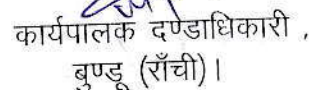 कार्यपालक दण्डाधिकारी ,
बुण्डू (राँची)।